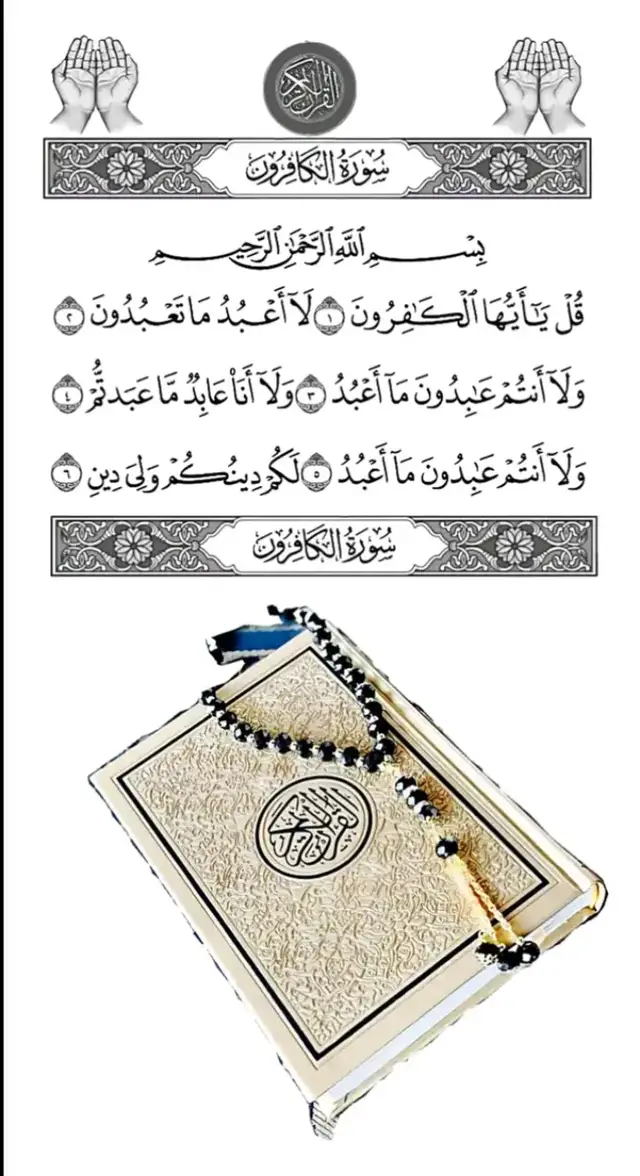 القرآن الكريم
سُورَةُ الكَافِرُونَ
بِسْمِ ٱللَّهِ ٱلرَّحْمَٰنِ ٱلرَّحِيمِ
قُلْ يَٰٓأَيُّهَا ٱلْكَٰفِرُونَ ١ لَآ أَعْبُدُ مَا تَعْبُدُونَ ٢
وَلَآ أَنتُمْ عَٰبِدُونَ مَآ أَعْبُدُ ٣ وَلَآ أَنَا۠ عَابِدٌ مَّا عَبَدتُّمْ ٤
وَلَآ أَنتُمْ عَٰبِدُونَ مَآ أَعْبُدُ ٥ لَكُمْ دِينُكُمْ وَلِىَ دِينِ ٦
سُورَةُ الكَافِرُونَ
القرآن الكريم